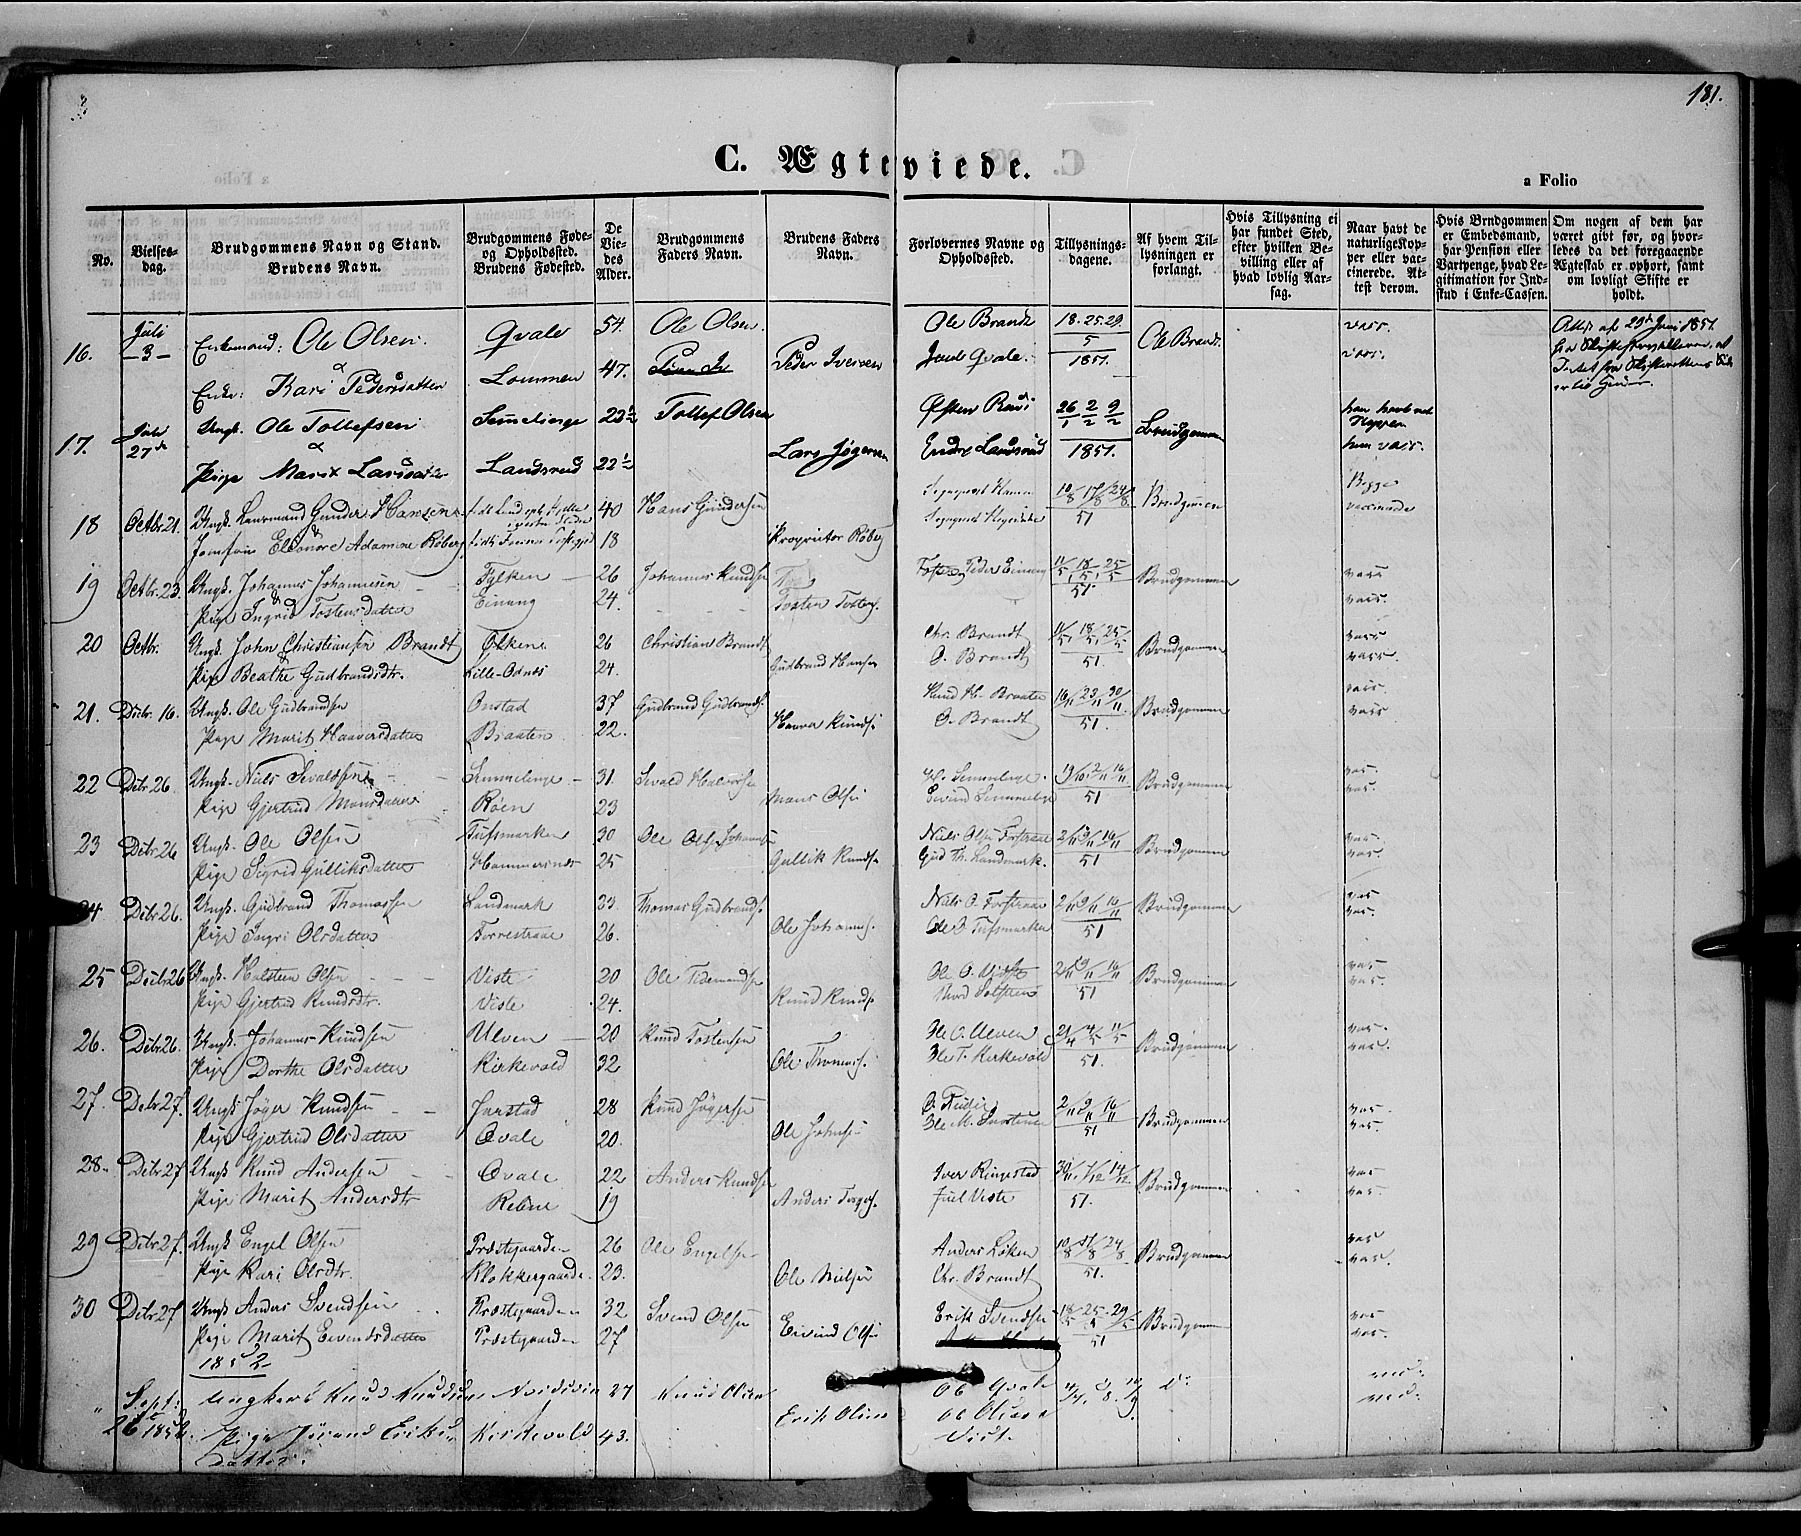 181.
C. Ægteviede.
a Folio
No.
Vielses-dag.
Brudgommens Navn og Stand.
Brudens Navn.
Brudgommens Føde- og Opholdssted.
Brudens Fødested.
De Viedes Alder.
Brudgommens Faders Navn.
Brudens Faders Navn.
Forlovernes Navne og Opholdssted.
Tillysnings-dagene.
Af hvem Tillysningen er forlangt.
Hvis Tillysning ei har fundet Sted, efter hvilken Bevilling eller af hvad lovlig Aarsag.
Naar havt de naturlige Kopper eller vaccinerede. Attest derom.
Hvis Brudgommen er Embedsmand, har Pension eller Vartpenge, hvad Legitimation for Indskud i Enke-Cassen.
Om nogen af dem har været gift før, og hvorledes da det foregaaende Ægteskab er ophørt, samt om lovligt Skifte er holdt.
16. Juli 3 Enkemand: Ole Olsen. Qvale 54. Ole Olsen. Ole Brandt 18. 25. 29. Ole Brandt. vacc.
Enke: Kari Pedersdatter Lommen 47. Peder Iversen Juul Qvale. 5 1851. vacc.
17. Juli 27de Ungk. Ole Tollefsen Semeleenge 22½ Tollef Olsen Østen 26/1 2/2 9/2 Brudgommen
Pige Marit Larsdatter Landsrud 22½ Lars Jøgersen Endre Landsrud 1851. hun vacc.
18 Octbr. 21. Ungk. Gunder Hansen 40 Hans Gundersen 10/8 17/8 24/8 Brudgommen Begge
Jomfru Eleonore Adamine Røberg 18 Proprietør Røberg 51 vaccinerede
19 Octbr. 23. Ungk. Johannes Johannesen Fylken 26 Johannes Knudsen Peder Einang 11/5 18/5 25/5 Brudgommen vacc
Pige Ingrid Tostensdatter Einang 24. Tosten Tostens. 51. vacc.
20 Octbr. Ungk. John Christiansen Brandt Ølken 26 Christian Brandt Chr. Brandt 11/5 18/5 25/5 Brudgommen vacc
Pige Beathe Gudbrandsdtr. Lille-Odnæs 24. Gudbrand Hansen O. Brandt 51. vacc.
21. Decbr. 16. Ungk. Ole Gudbrandsen Onstad 37 Gudbrand Gudbrands. Knud H. Braaten 16/11 23/11 30/11 Brudgommen vacc.
Pige Marit Haaversdatter Braaten 22. Haaver Knudsen O. Brandt 51. vacc
22 Decbr. 26 Ungk. Niels Sevaldsen Semmelenge 31. Sevald Halvorsen 19/10 2/11 16/11 Brudgommen vac.
Pige Gjertrud Monsdatter Røen 23 Mons Olsen Eivind Semmelenge 51 vac.
23 Decbr. 26 Ungk. Ole Olsen Tufsmarken 30 Ole Olsen Niels Olsen 2/11 9/11 16/11 Brudgommen vac
Pige Sigrid Gulliksdatter Hammersnæs 25 Gullik Knudsen Gud. Th. Landmark. 51 vac.
24 Decbr. 26. Ungk. Gudbrand Thomassen Landmark 33. Thomas Gudbrands. Niels O. 2/11 9/11 16/11 Brudgommen vac
Pige Ingri Olsdatter Forrestraae 26. Ole Johannes. Ole O. Tufsmarken 51 vac.
25 Decbr. 26 Ungk. Halsten Olsen Viste 20 Ole Tidemandsen Ole O. 2/11 9/11 16/11 Brudgommen vac
Pige Gjertrud Knudsdtr. Viste 24. Knud Knuds. 51 vac.
26. Decbr. 26. Ungk. Johannes Knudsen Ulven 20 Knud Tostensen Ole O. Ulven 21/4 4/5 11/5 Brudgommen vac.
Pige Dorthe Olsdatter Kirkevold 32 Ole Thomass. Ole T. Kirkevold 51. vac.
27. Decbr. 27. Ungk. Jøger Knudsen Jarstad 28 Knud Jøgersen 2/11 9/11 16/11 Brudgommen vac.
Pige Gjertrud Olsdatter Qvale 20. Ole Johnsen 51 vac.
28. Decbr. 27 Ungk. Knud Andersen Qvale 22 Anders Knudsen Iver Ringestad 30/11 7/12 14/12 Brudgommen vac
Pige Marit Andersdtr. Rebne 19 Anders Juul Viste 51. vac.
29 Decbr. 27. Ungk. Engel Olsen Præstegaarden 26 Ole Engelsen Anders Løken 10/8 17/8 24/8 Brudgommen vac
Pige Kari Olsdtr. Klokkergaarde. 23. Ole Nielsen Chr. Brandt 51. vac.
30 Decbr. 27 Ungk. Anders Svendsen Præstegaarden 32 Svend Olsen Erik Svendsen 18/5 25 29/5 Brudgommen vac
Pige Marit Eivindsdatter Præstegaarden 27 Eivind Olsen 51 vac.
1852
" Sept: Ungkarl Knud Knudsen 27 Knud Olsen Ole Qvale
26 1852. Pige Jørand Eriks- Kirkevold 43. Erik Olsen Ole Olsen
datter. Vist.